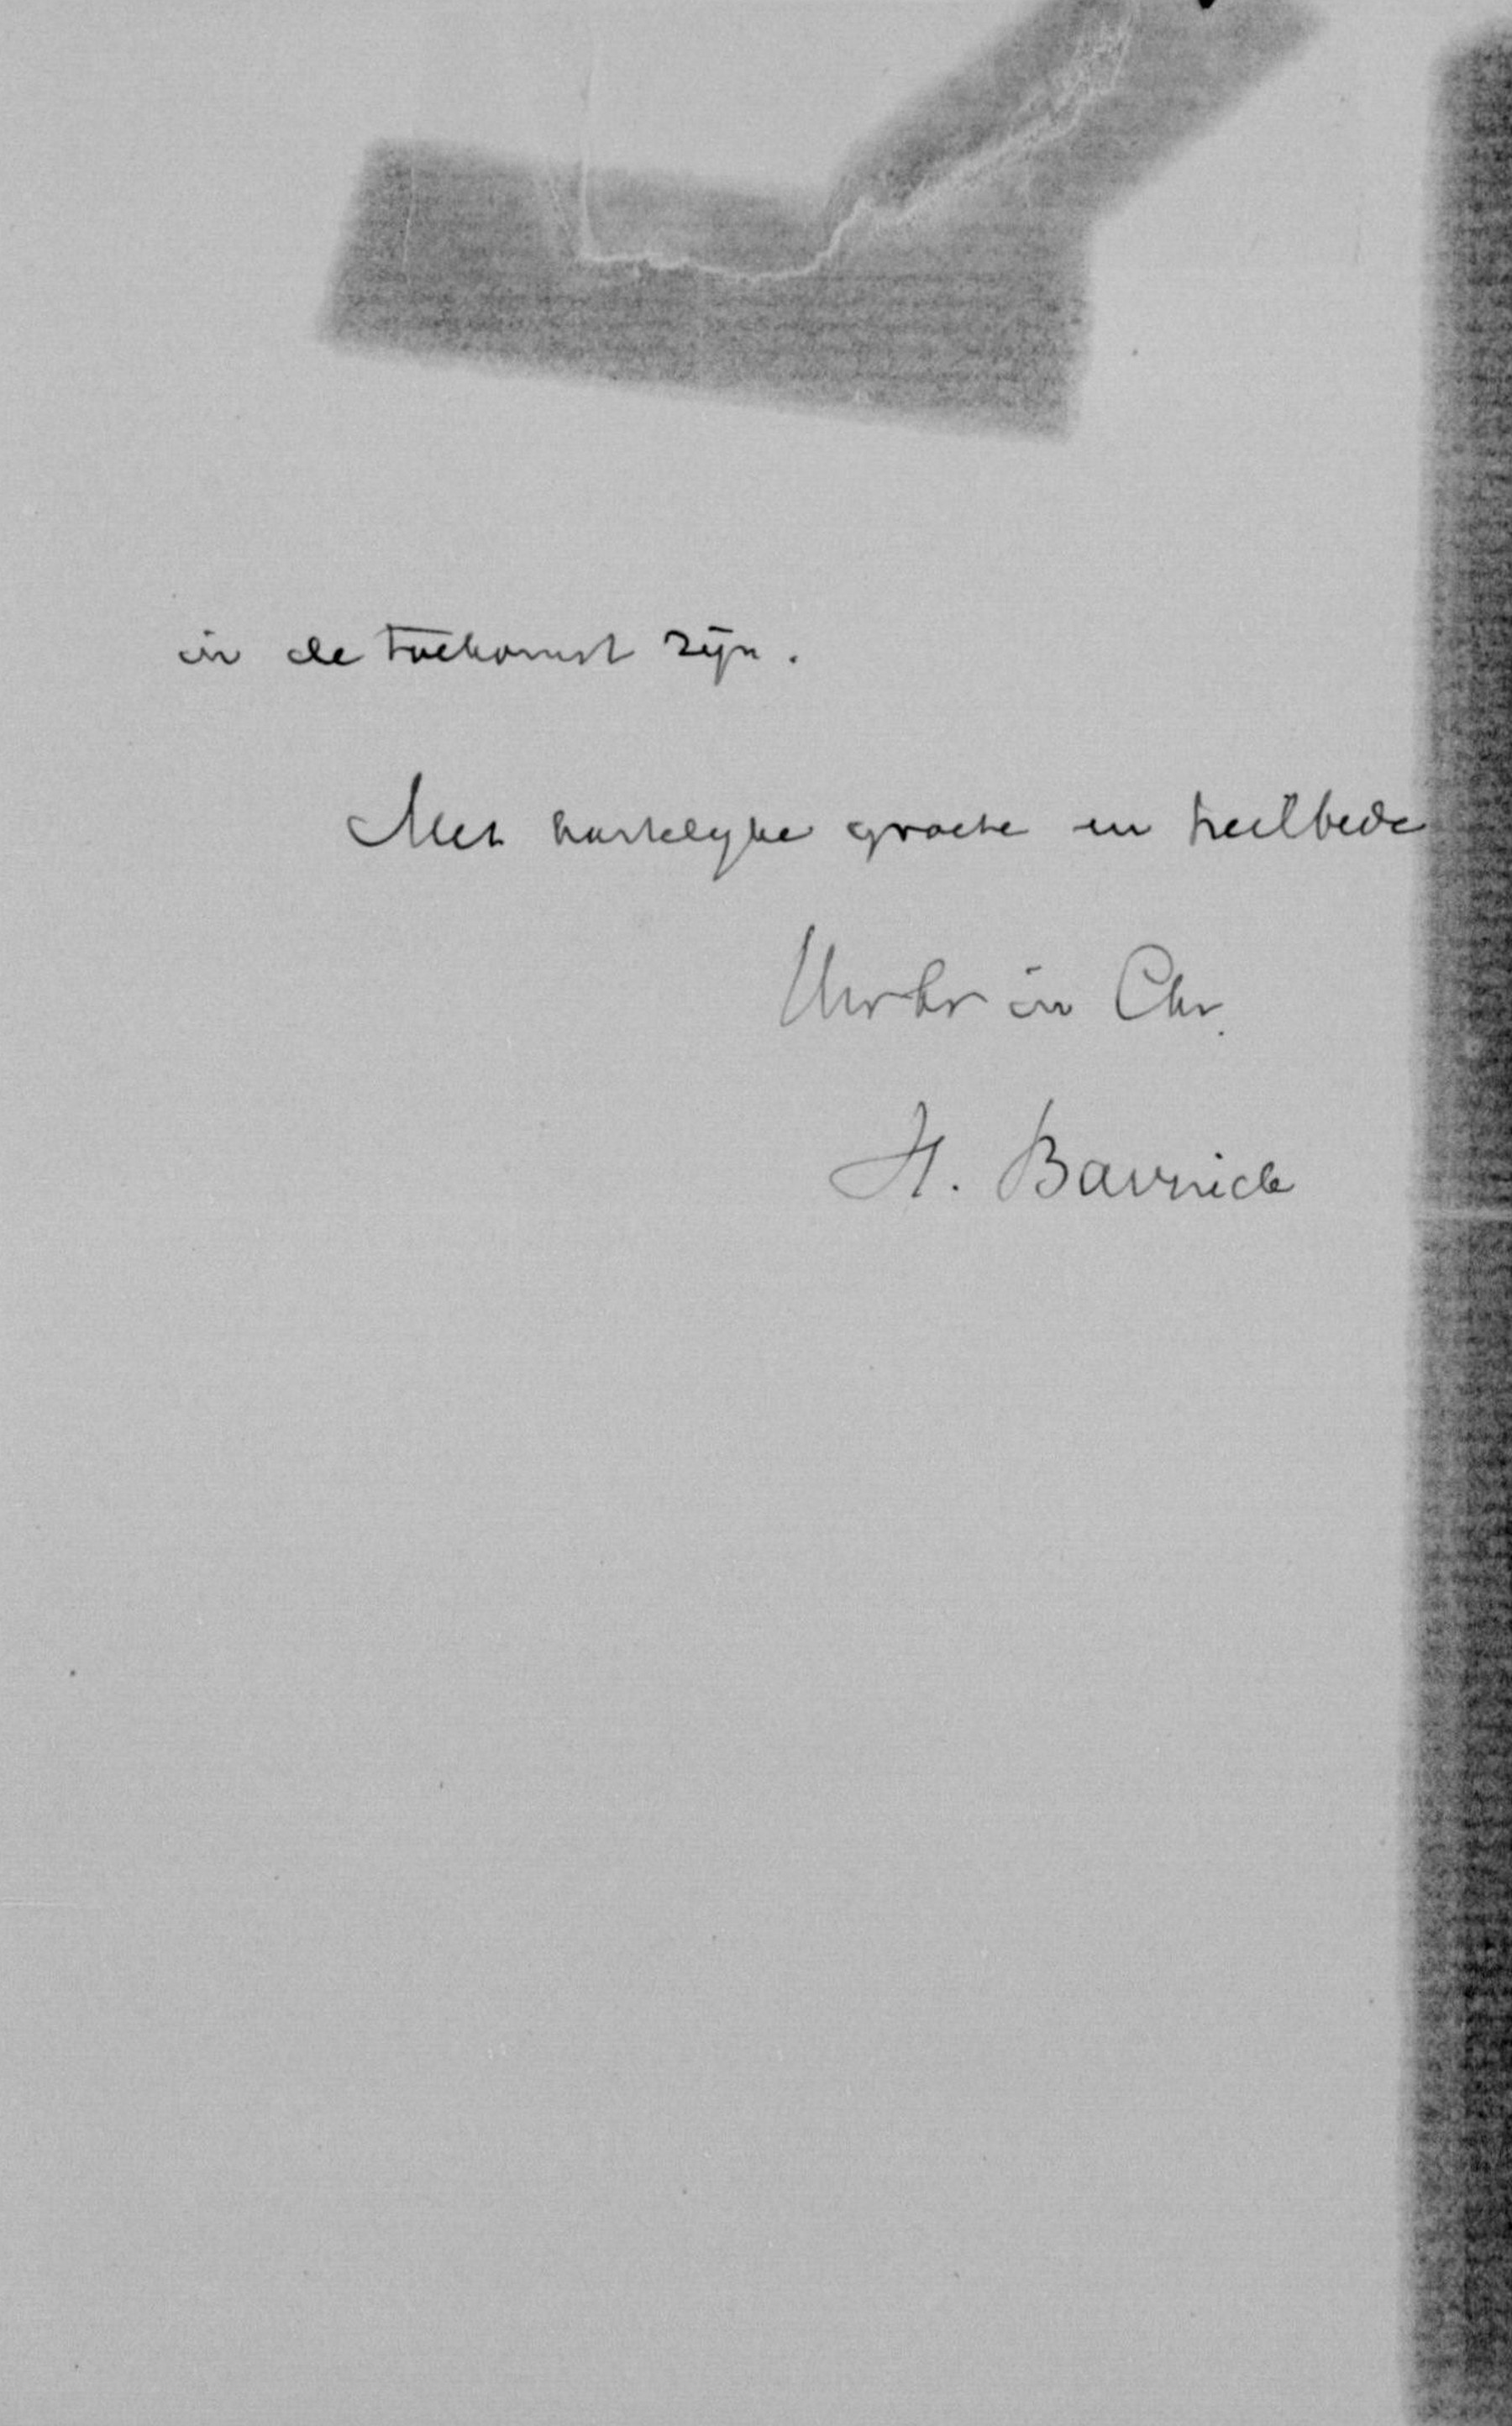 in de toekomst zijn.
Met hartelyke groete en heilbede
Uw br in Chr.
H. Bavinck